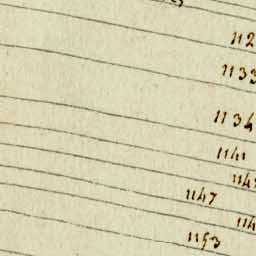 112
1133
1134
1141
114
1147
114
1153